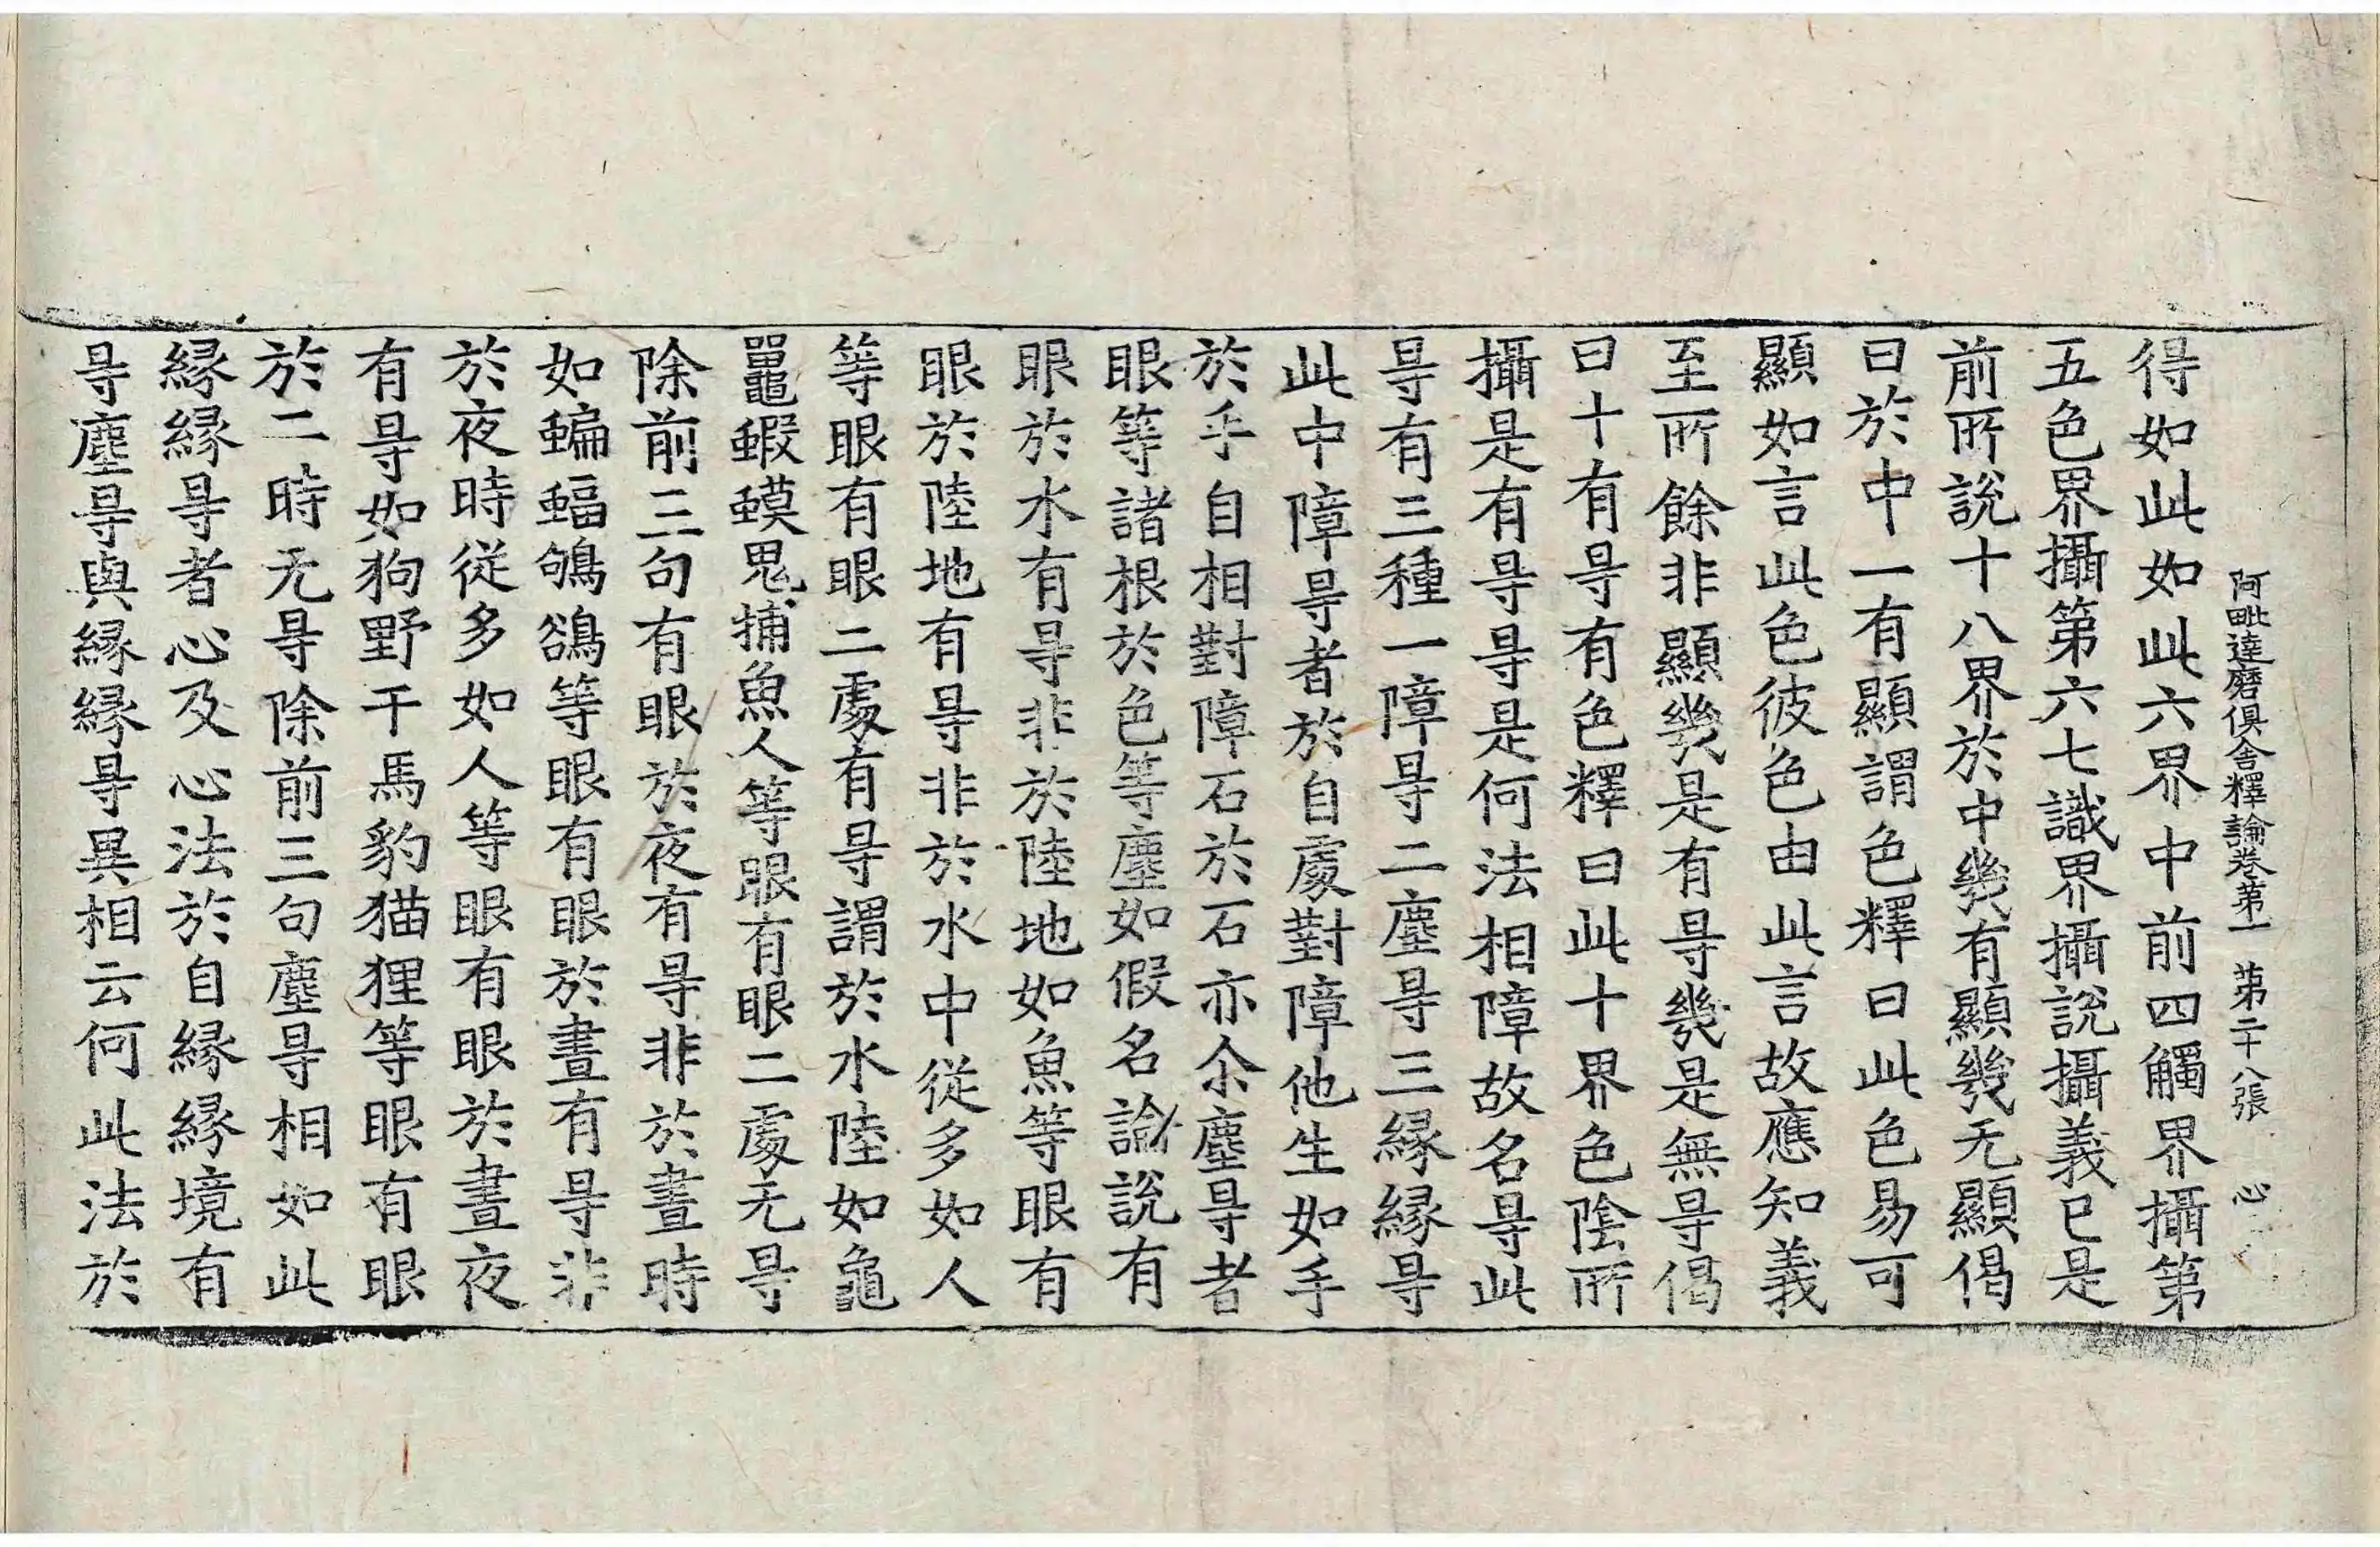 阿毗達磨俱舍釋論卷第一　第二十八張　心
得如此如此六界中前四觸界攝第
五色界攝第六七識界攝說攝義已是
前所說十八界於中幾有顯幾无顯偈
曰於中一有顯謂色釋曰此色易可
顯如言此色彼色由此言故應知義
至所餘非顯幾是有㝵幾是無㝵偈
曰十有㝵有色釋曰此十界色陰所
攝是有㝵㝵是何法相障故名㝵此
㝵有三種一障㝵二塵㝵三緣緣㝵
此中障㝵者於自處對障他生如手
於手自相對障石於石亦尒塵㝵者
眼等諸根於色等塵如假名論說有
眼於水有㝵非於陸地如魚等眼有
眼於陸地有㝵非於水中從多如人
等眼有眼二處有㝵謂於水陸如龜
鼉蝦蟆鬼捕魚人等眼有眼二處无㝵
除前三句有眼於夜有㝵非於晝時
如蝙蝠鴝鵒等眼有眼於晝有㝵非
於夜時從多如人等眼有眼於晝夜
有㝵如狗野干馬豹猫狸等眼有眼
於二時无㝵除前三句塵㝵相如此
緣緣㝵者心及心法於自緣緣境有
㝵塵㝵與緣緣㝵異相云何此法於